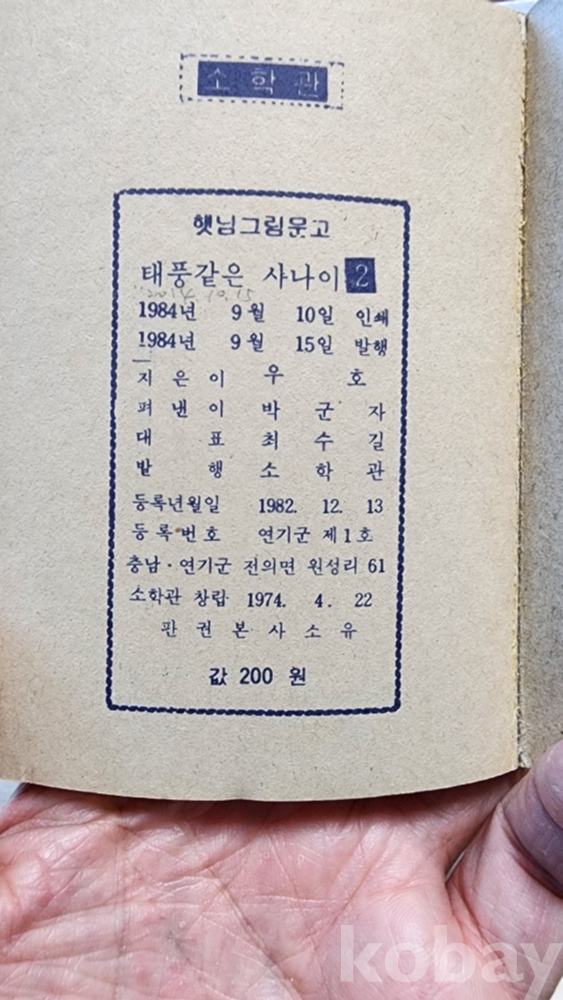 소학관
햇님그림문고
태풍같은 사나이 2
2014.10.15
1984년 9월 10일 인쇄
1984년 9월 15일 발행
지은이 우호
펴낸이 박군자
대표 최수길
발행 소학관
등록년월일 1982. 12. 13
등록번호 연기군 제1호
충남·연기군 전의면 원성리 61
소학관 창립 1974. 4. 22
판권본사소유
값 200 원
kobay